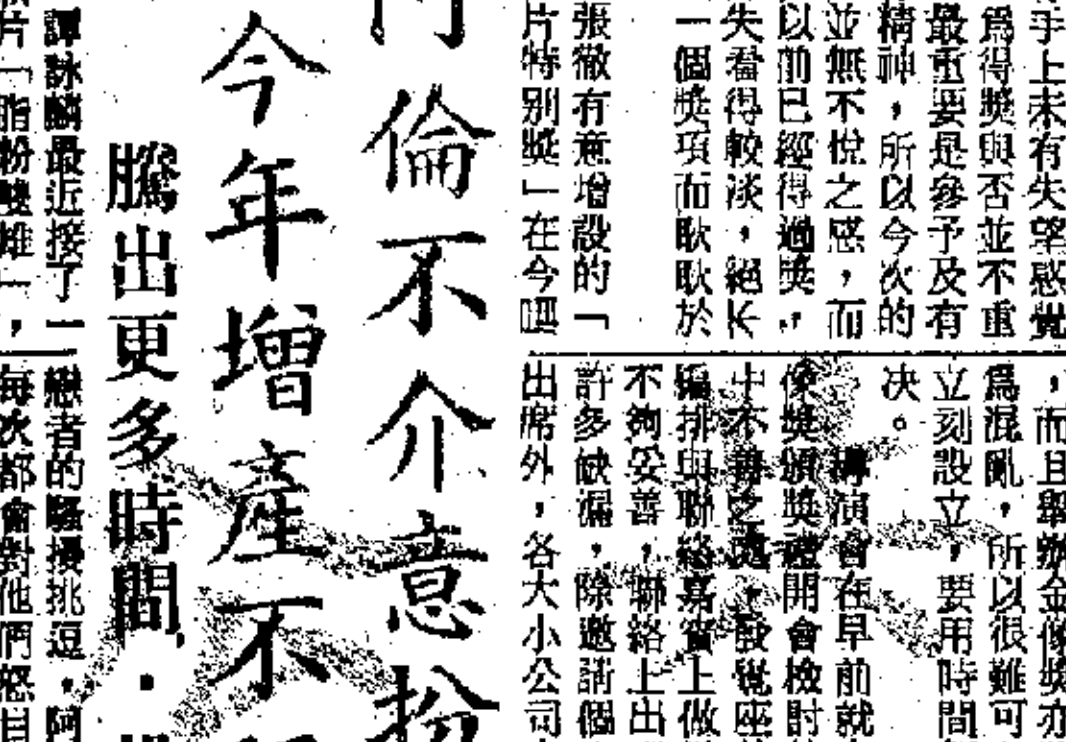 手上未有失望感覺
爲得獎與否並不重
最重要是參予及有
精神，所以今次的
並無不悅之感，而
以前已經得過獎，
失看得較淡，絕不
一個獎項而耿耿於
張徹有意增設的「
片特別獎」在今
，而且舉辦金像獎亦
爲混亂，所以很難可
立刻設立，要用時間
決。
講演會在早前就
像獎頒獎禮開會檢討
中不善之處，發覺座
編排與聯絡嘉賓上做
不夠妥善，聯絡上出
許多缺漏，除邀請個
出席外，各大小公司
倫不介意扮
今年增產不
騰出更多時間．
譚詠麟最近接了一
片「脂粉雙雄」，
戀者的騷擾挑逗，阿
每次都會對他們怒目